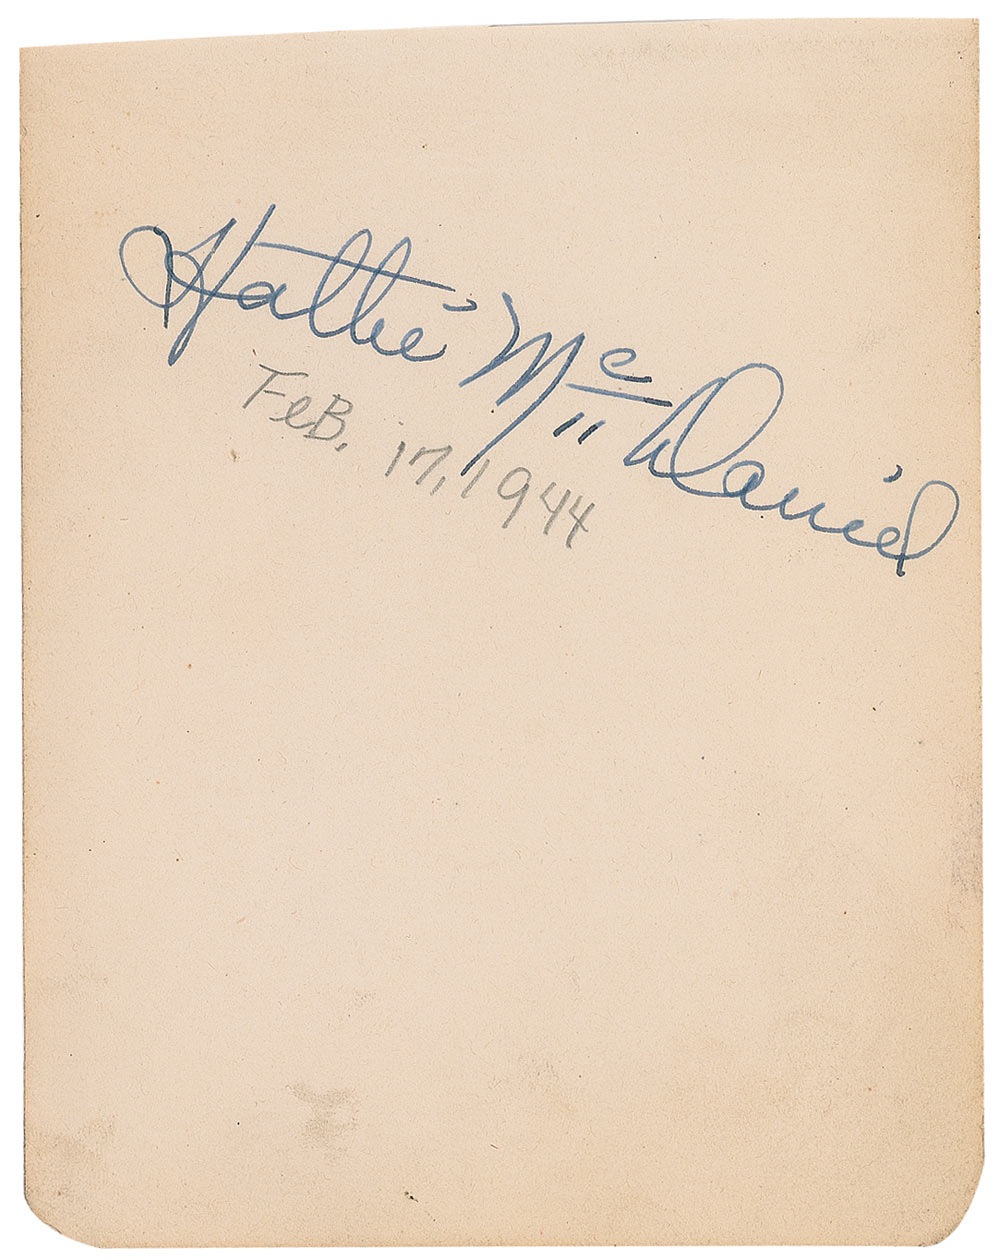 Hattie McDaniel
Feb. 17, 1944